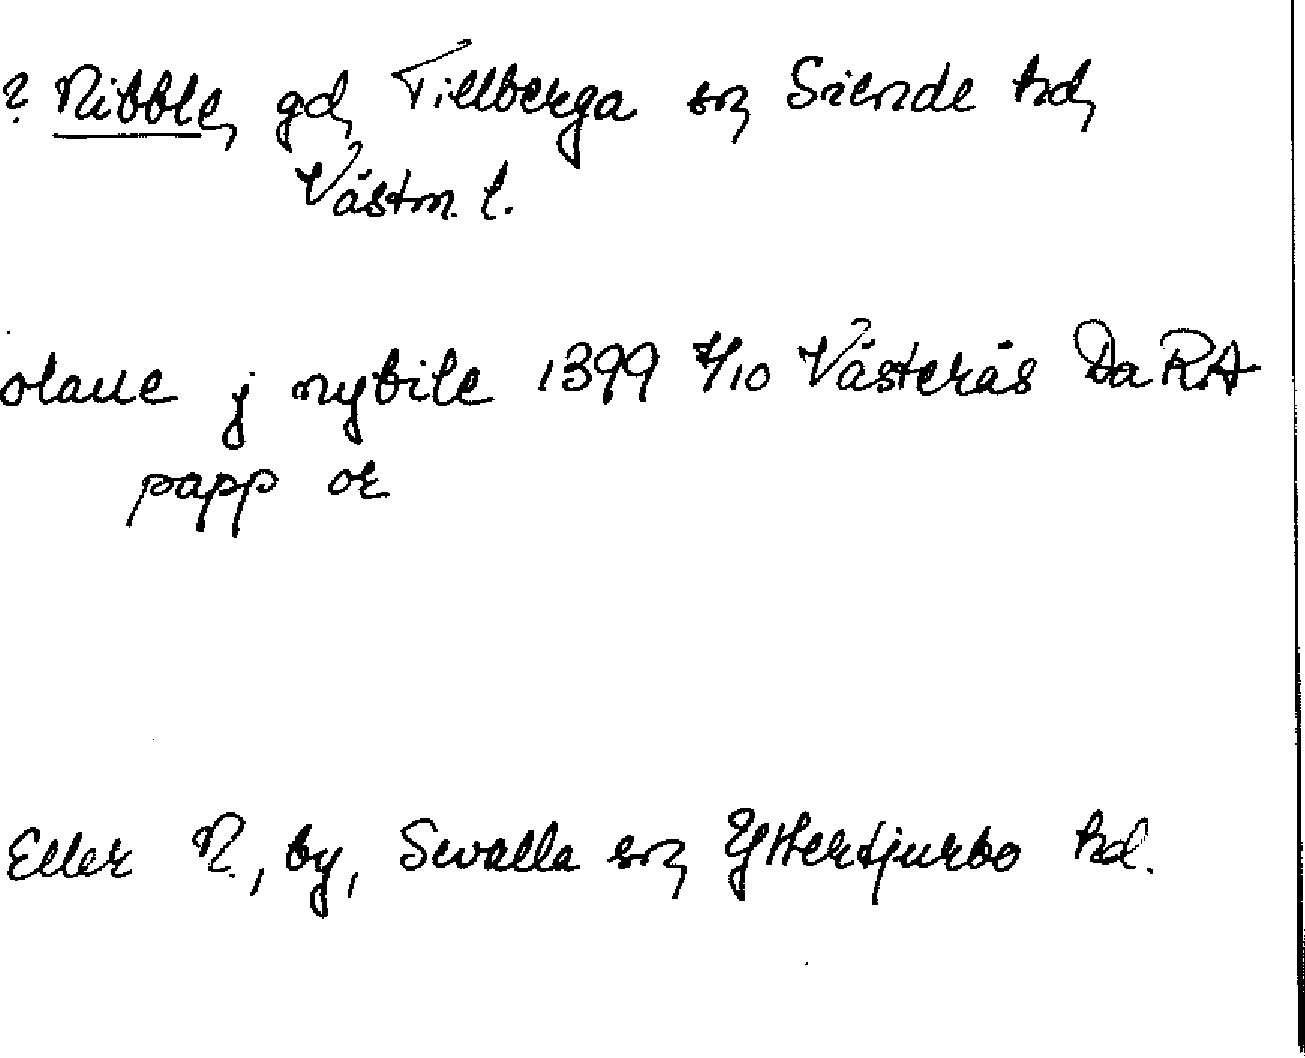 ? Nibble, gd, Tillberga sn, Siende hd,
Västm. l.
olaue j nybile 1399 /10 Västerås Da RA
papp or
Eller N., by, Sevalla sn, Yttertjurbo hd.